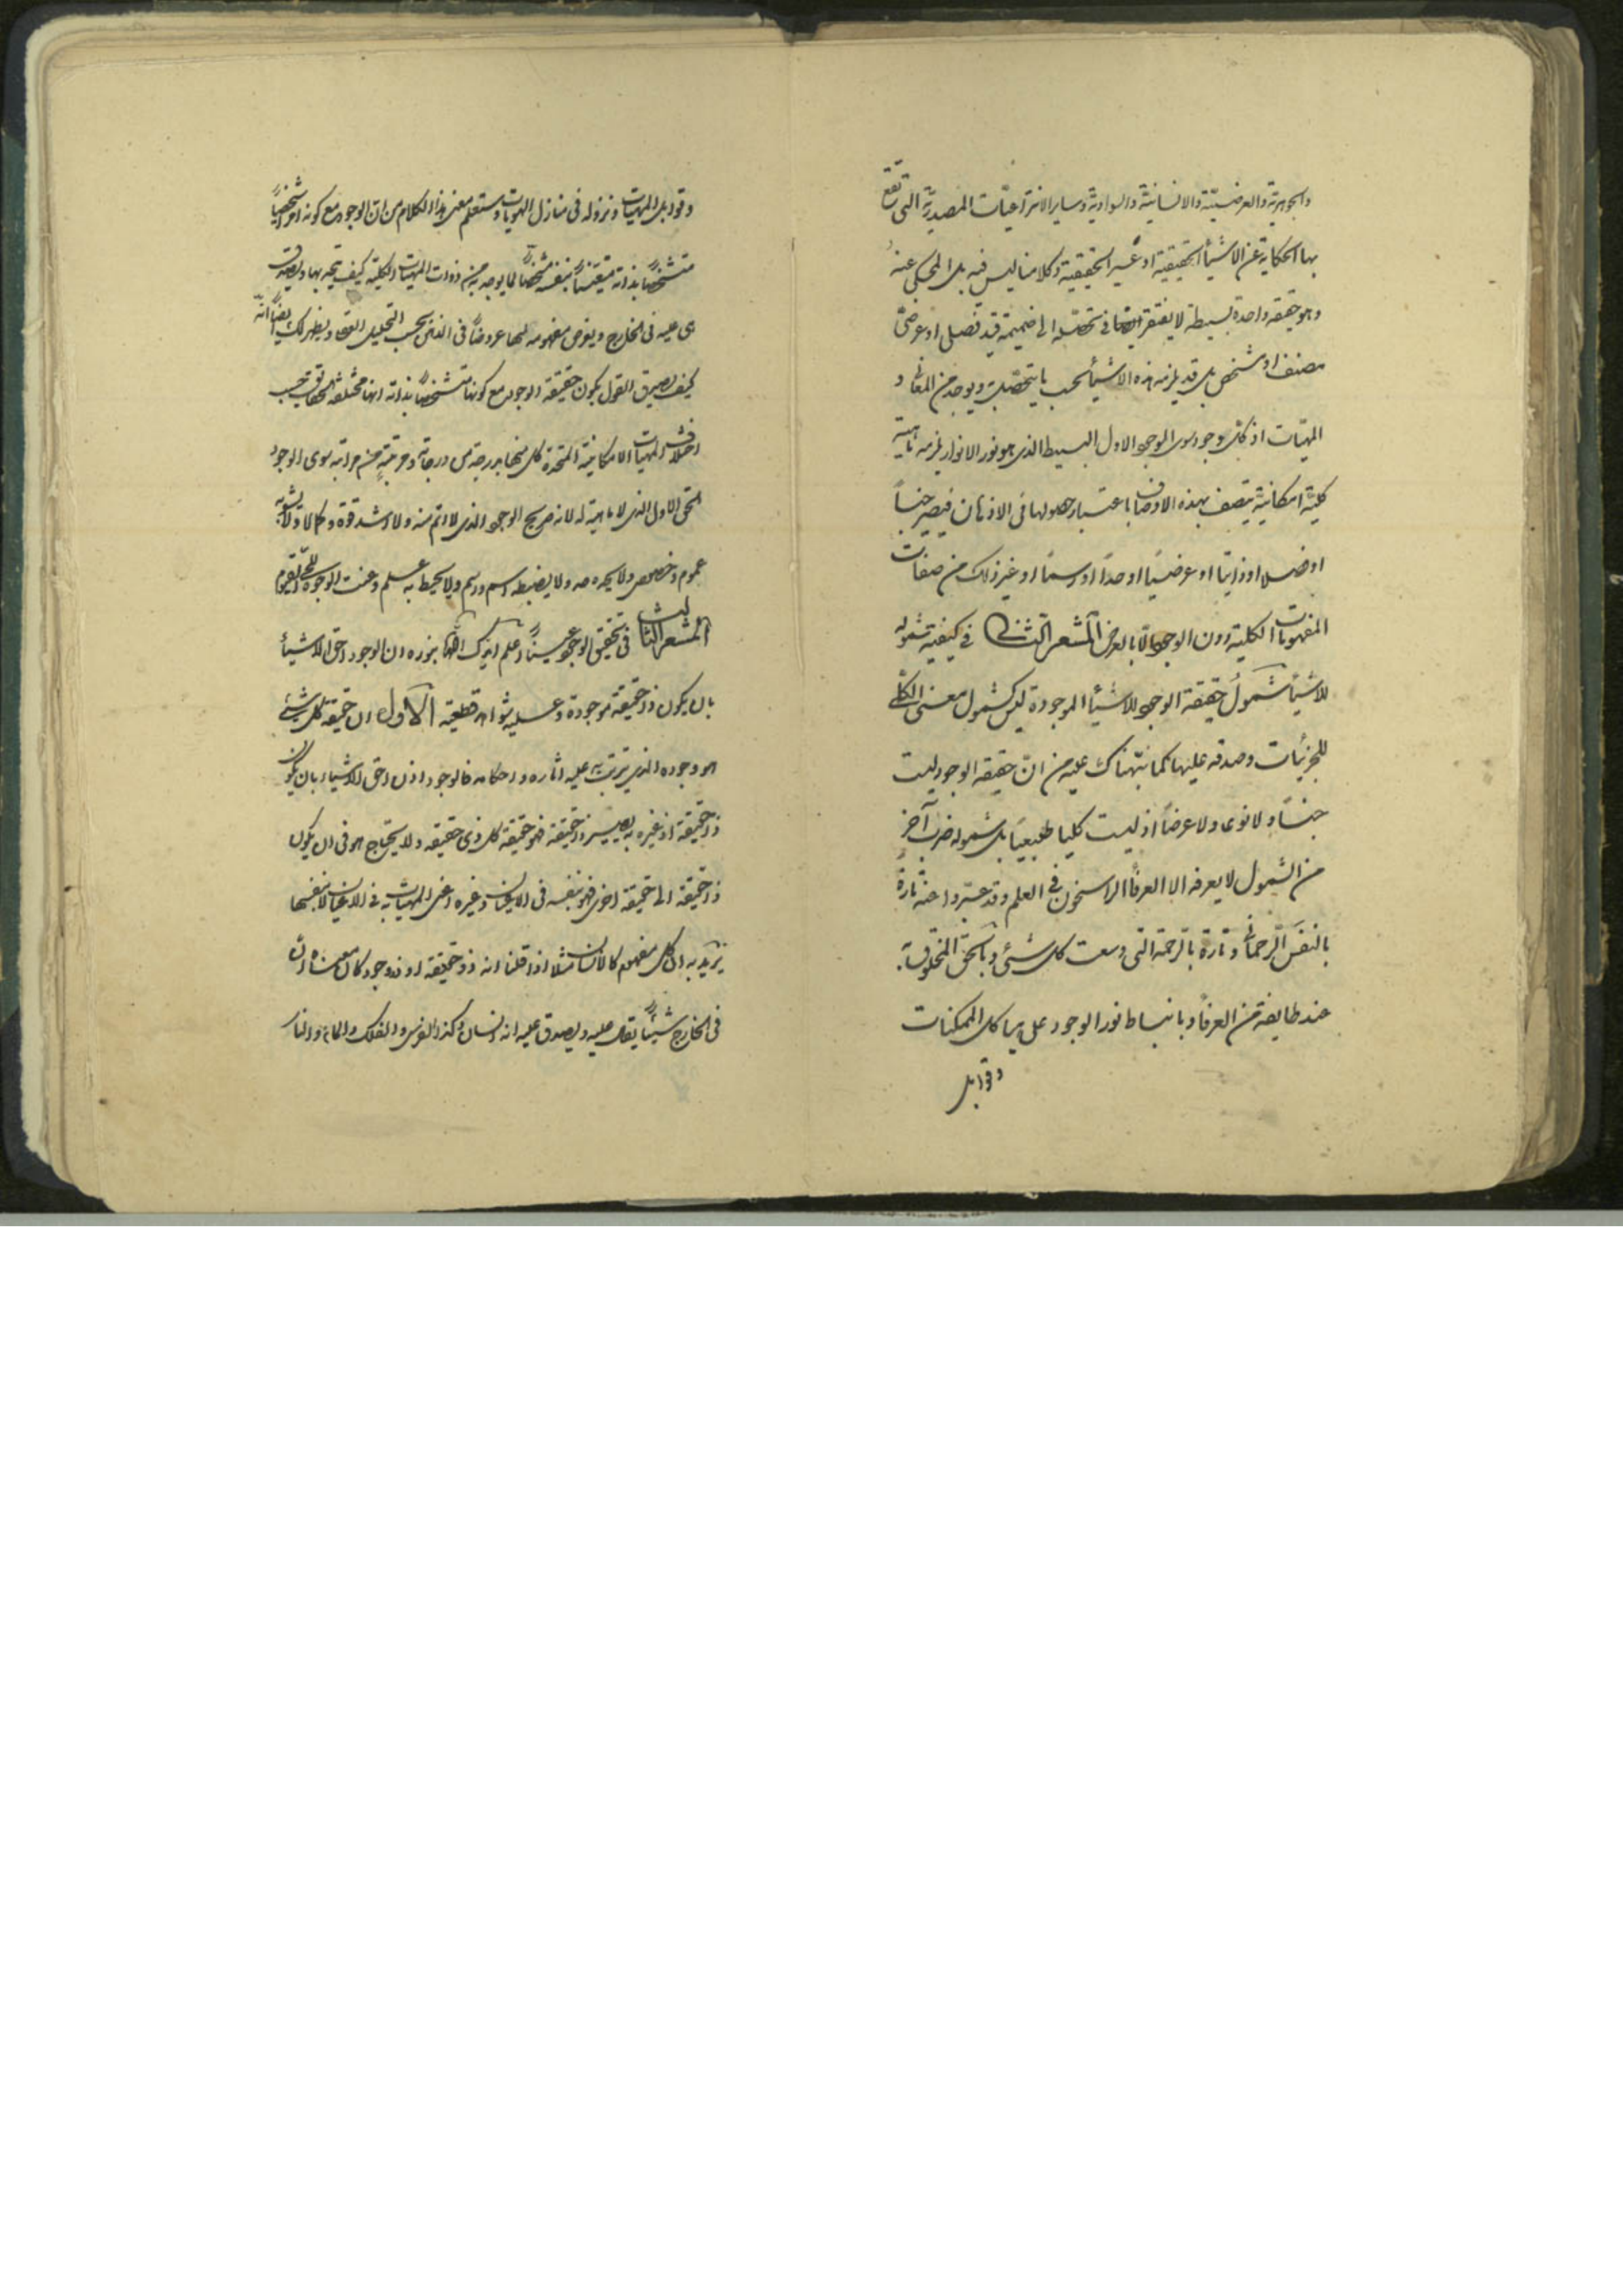 والجوهرية والعرضيّة والانسانيّة والسوادية وساير الانتزاعيّات المصدريّة التي تقع
بها الحكاية عن الاشيأ الحقيقية او غير الحقيقية وكلامنا ليس فيه بل المحكى عنه
وهو حقيقه واحدة بسيطة لا يفتقر في تحصّله الى ضميمة قيد فصلى او عرضىّ
مصنف او مشخص بل قد يلزمه هذه الاشيأ بحسب ما يتحصّل به ويوجد من المعانى و
المهيّات اذ كلّ وجود سوى الوجود الاول البسيط الذى هو نور الانوار يلزمه ماهية
كليّة امكانيّة يتصف بهذه الاوصاف باعتبار حصولها فى الاذهان فيصير جنساً
او فصلا او ذاتيّا او عرضيّا او حدّا او رسمًا او غير ذلك من صفات
المفهومات الكلية دون الوجود الّا بالعرض المشعر الثانى في كيفية شموله
للاشيأ شمول حقيقة الوجود للاشيأ الموجودة ليس كشمول معنى الكلّى
للجزئيات وصدقه عليها كما نبّهناك عليه من انّ حقيقه الوجود ليست
جنساً ولا نوعا ولا عرضاً اذ ليست كليا طبيعيّا بل شموله ضرب آخر
من الشمول لا يعرفه الا العرفأ الراسخون في العلم وقد عبّروا عنه تارةً
بالنفَس الرّحمانى وتارة بالرّحمة التى وسعت كل شئى وبالحق المخلوق به
عند طايفة من العرفأ وبانبساط نور الوجود على هياكل الممكنات
وقوابل
وقوابل المهيّات ونزوله في منازل الهويات وستعلم معنى هذا الكلام من ان الوجود مع كونه امرا شخصيّاً
متشخّصاً بذاته متعيّناً بنفسه مشخّصاً لما يوجد به من ذوات المهيّات الكلية كيف يتحد بها ويصدق
هى عليه فى الخارج ويعرض مفهومه لها عروضاً فى الذهن بحسب التحليل العقلى ويظهر لك ايضاً انّه
كيف يصدق القول بكون حقيقة الوجود مع كونها متشخّصاً بذاته انها مختلفة الحقايق بحسب
اختلاف المهيّات الامكانية المتحدة كل منها بدرجة من درجاته ومرتبةٍ من مراتبه سوى الوجود
الحق الاول الذى لا ماهية له لانه صريح الوجود الذى لا اتم منه ولا اشد قوة وكمالا ولا يشوبه
عموم وخصوص ولا يحده حد ولا يضبطه اسم ورسم ولا يحيط به علم وعنت الوجوه للحى القيوم
المشعر الثالث فى تحقيق الوجود عيناً اعلم ايّدك الله تعالى بنوره ان الوجود احق الاشيأ
بان يكون ذا حقيقة موجودة وعليه شواهد قطعية الاول ان حقيقة كل شئى
هو وجوده الذى يترتب به عليه اثاره واحكامه فالوجود اذن احق الاشياء بان يكون
ذا حقيقة اذ غيره به يصير ذا حقيقة فهو حقيقة كل ذى حقيقه ولا يحتاج هو فى ان يكون
ذا حقيقة الى حقيقة اخرى فهو بنفسه فى الاعيان وغيره اعنى المهيّات به فى الاعيان لا بنفسها
نريد به ان كل مفهوم كالانسان مثلا اذا قلنا انه ذو حقيقة او ذو وجود كان معناه ان
فى الخارج شيئاً يقال عليه ويصدق عليه انه انسان وكذا الفرس والفلك والماء والنار